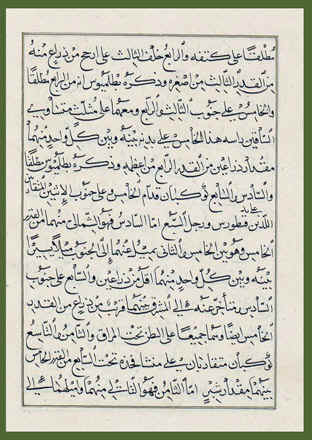 مطلقًا على كتفه والرابع خلف الثالث على ارجح من ذراع منه
من القدر الثالث من اصغره وذكره بطلميوس انه من الرابع مطلقا
والخامس على جنوب الثالث والرابع ومعهما على مثلث متساوي
الساقين راسه هذا الخامس على بينه وبين كل واحد منهما
مقدار ذراعين من القدر الرابع من اعظمه وذكره بطلميوس مطلقا
والسادس والسابع كوكبان قدام الخامس وعلى جنوب الاثنين المتقا
اللذين قطورس ورجل السبع اما السادس فهو الشمالي منهما من القدر
الخامس فهو بين الخامس والثاني يميل عنهما الى الجنوب
بينه وبين كل واحد منهما اقل من ذراعين والسابع على جنوب
السادس ويتاخر عنه الى المشرق بينهما قريب من ذراع من القدر
الخامس ايضا وهما جميعا على البطن تحت المراق والثامن والتاسع
كوكبان متقاربان على منشا فخذه تحت السابع من القدر الخامس
بينهما مقدار شبر اما الثامن فهو التالي منهما وامثلهما الى